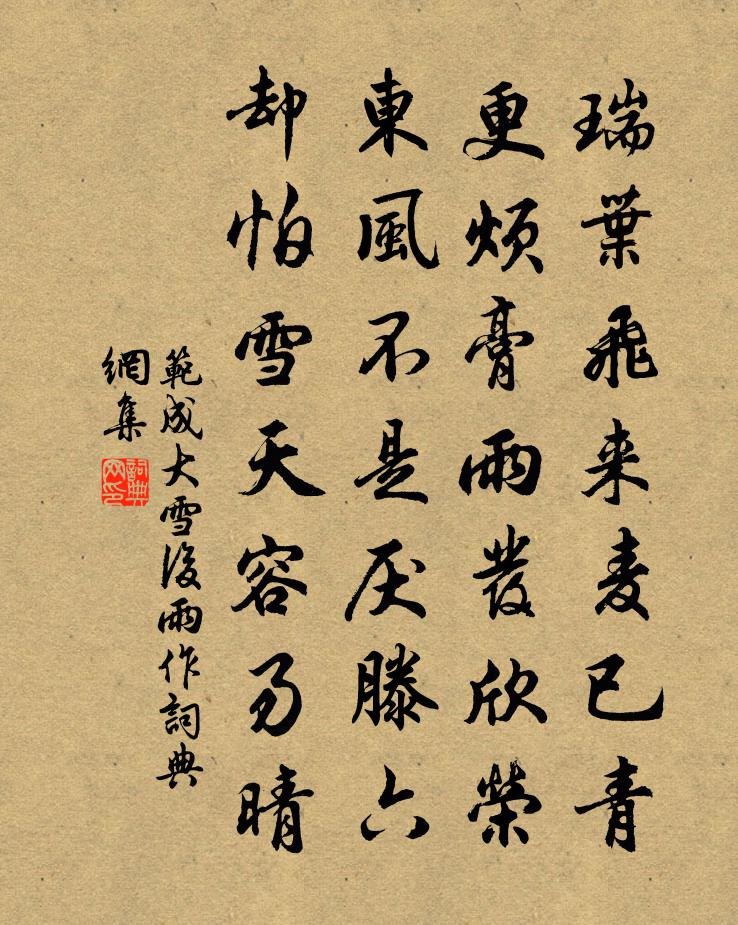 瑞葉飛来麦已青
更煩膏雨發欣榮
東風不是厌滕六
却怕雪天容易晴
範成大雪後雨作詞典
網集
詞典網印